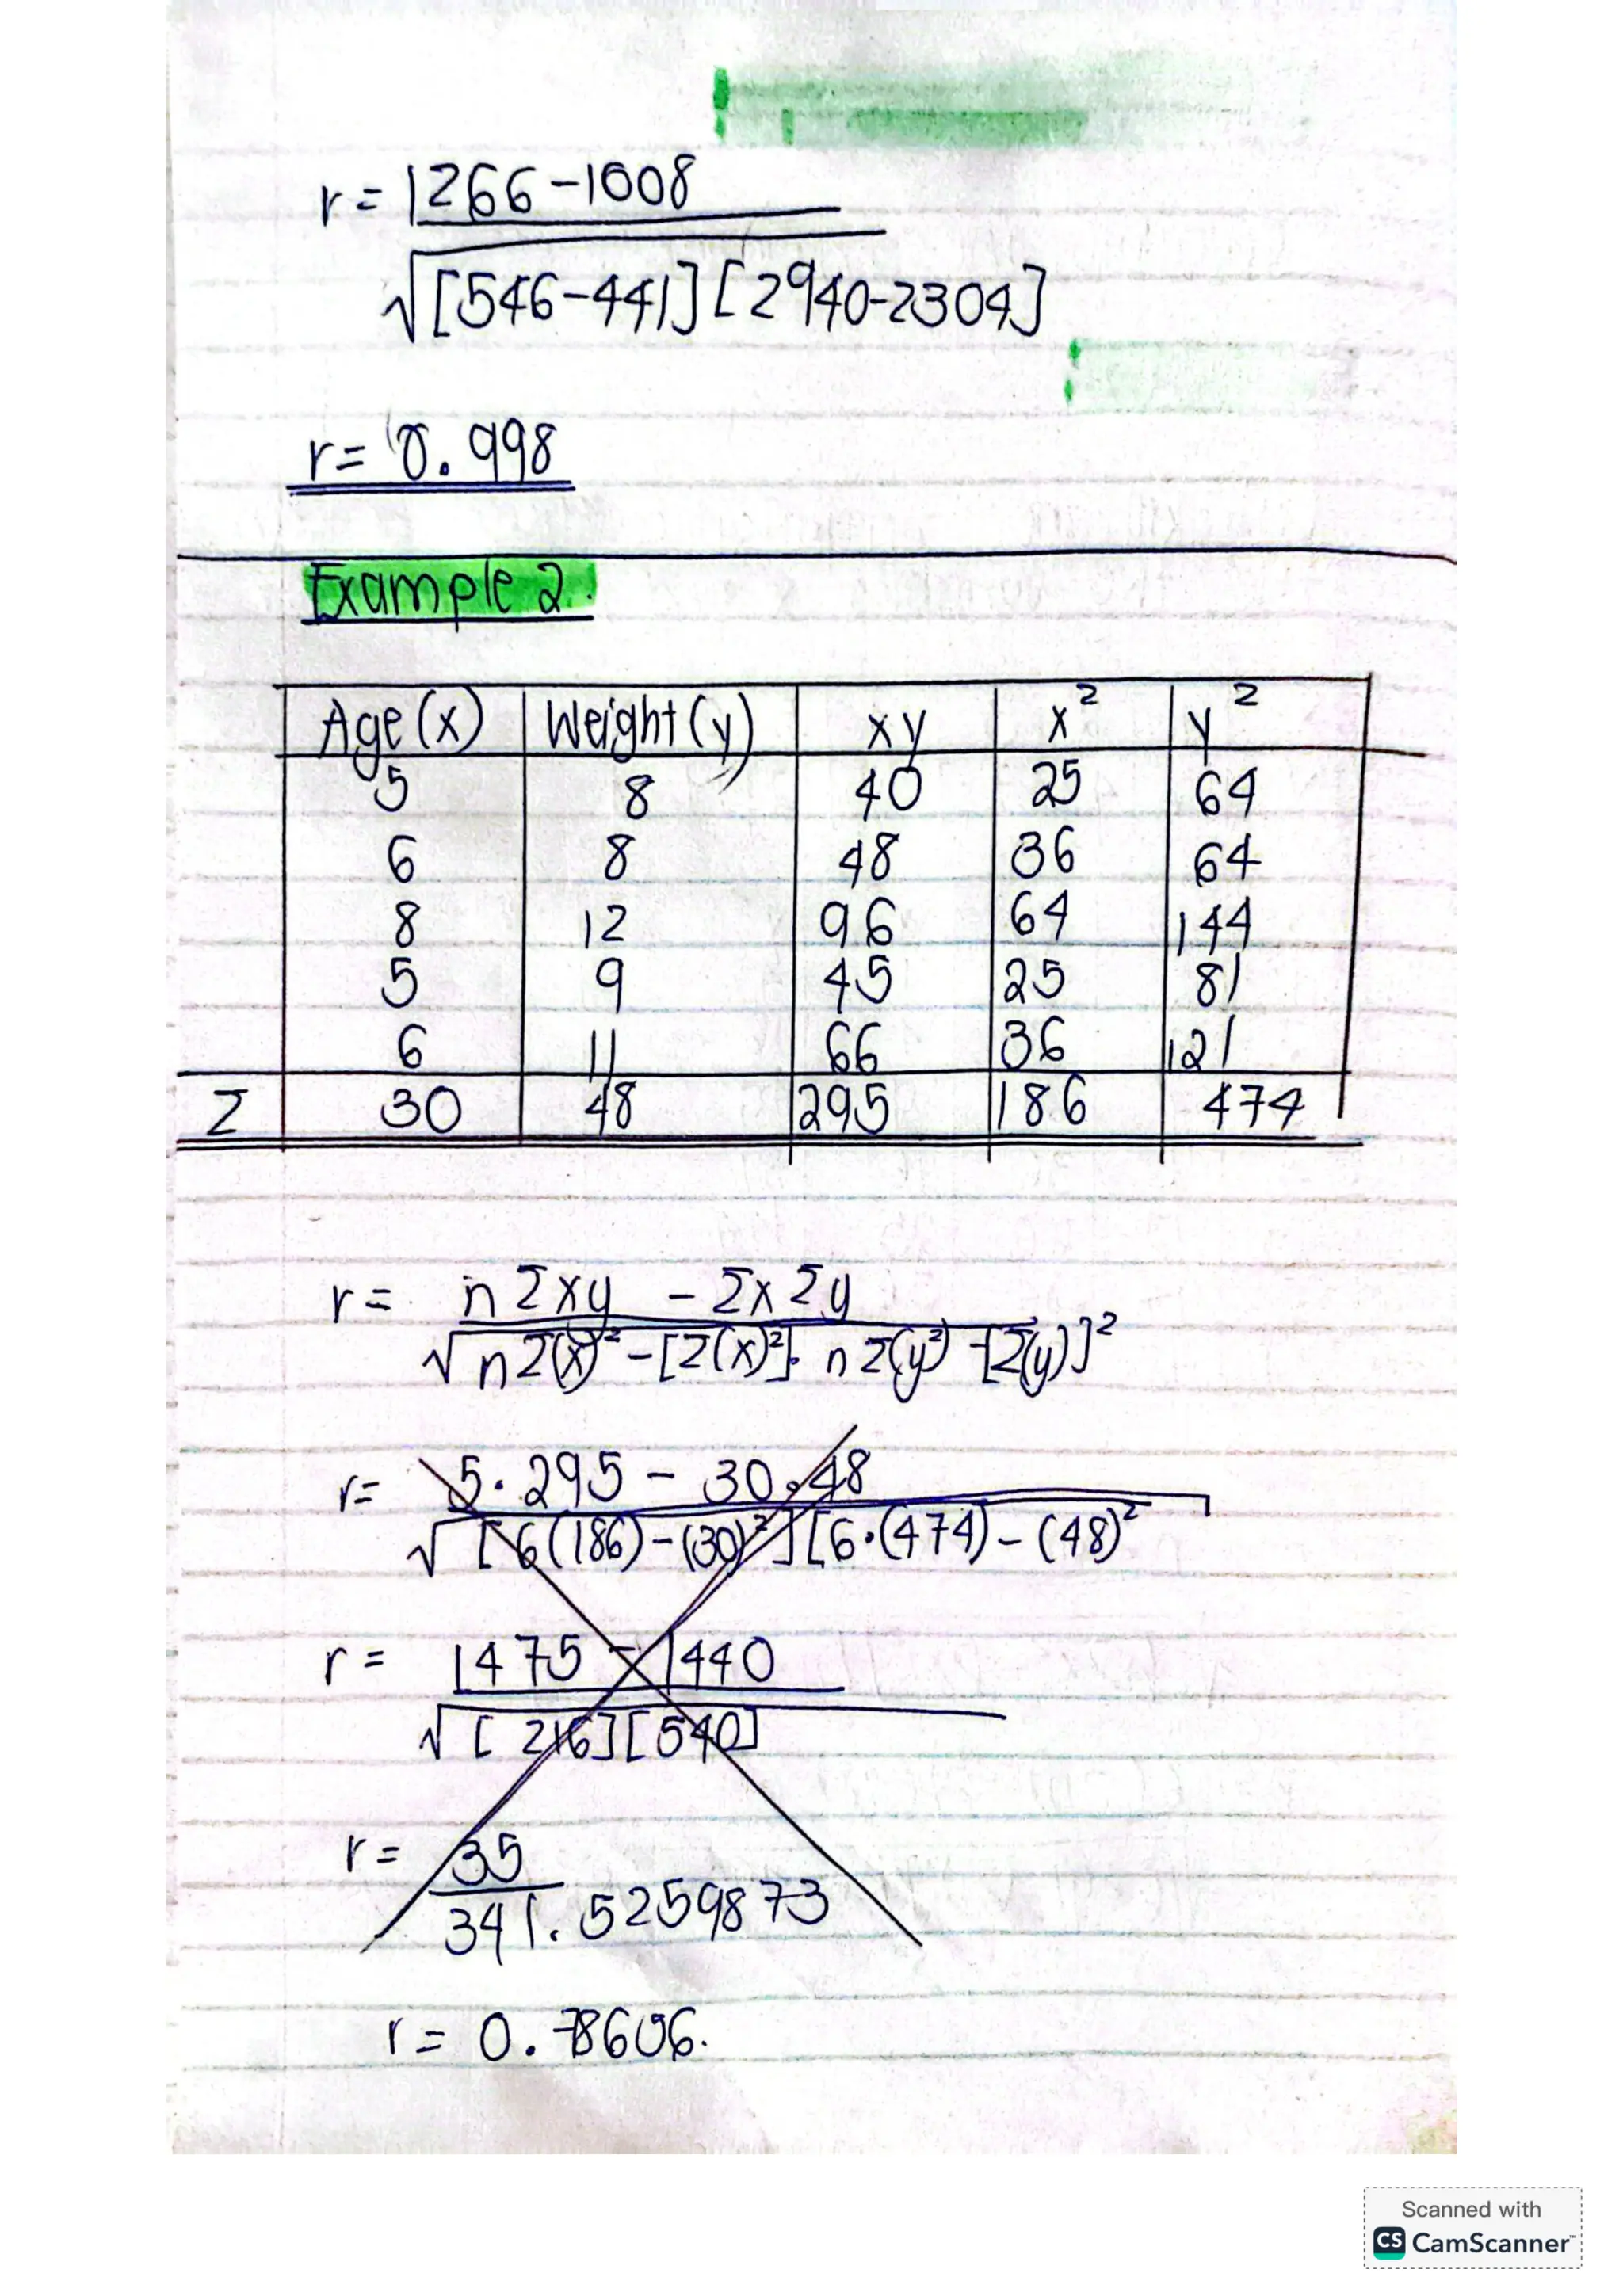 r = 1266-1008
√[546-441][2940-2304]
r = 0.998
Example 2.
Age(x) Weight(y) xy x² y²
5 8 40 25 64
6 8 48 36 64
8 12 96 64 144
5 9 45 25 81
6 11 66 36 121
Σ 30 48 295 186 474
r = nΣxy - ΣxΣy
√nΣ(x)² - [Σ(x)²]. nΣ(y²) - [Σ(y)]²
r= 5.295 - 30.48
√[6(186)-(30)²][6.(474)-(48)²
r = 1475 - 1440
√[216][540]
r = 35
341.5259873
r = 0.78606.
Scanned with
CS CamScanner™